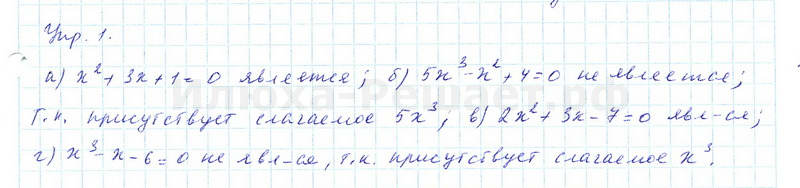 Упр. 1.
а) x² + 3x + 1 = 0 является; б) 5x³ - x² + 4 = 0 не является;
т.к. присутствует слагаемое 5x³; в) 2x² + 3x - 7 = 0 явл-ся;
г) x³ - x - 6 = 0 не явл-ся, т.к. присутствует слагаемое x³.
Илюха-Решает.рф